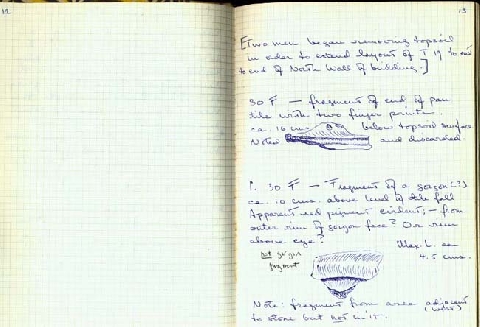 12
13
[Two men began removing topsoil
in order to extend layout of T 19 to out
to end of North Wall of building.]
30 F — fragment of end of pan
tile with two finger prints.
ca. 16 cm. below topsoil surface
Noted and discarded
P. 30 F — Fragment of a gorgon (?)
ca. 10 cms. above level of tile fall
Apparent red pigment evident; — from
outer rim of gorgon face? Or rim
above eye?
Max. L. ca
4.5 cms.
not gorgon
fragment
Note: fragment from area adjacent
to stone but not in it.